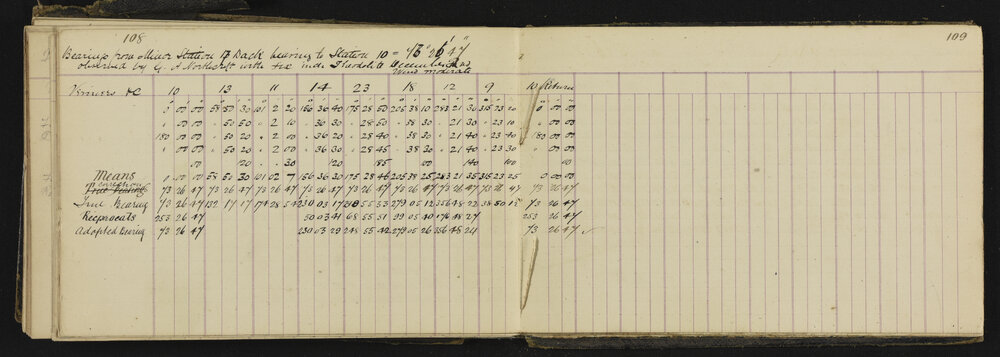 108
109
Bearings from Station Back bearing to Station 10 = 73° 26' 47"
observed by G. A Northcroft with six inch Theodolite December
Wind moderate
Verniers &C 10 13 11 14 23 18 12 9 10 Return
0 00 00 58 50 30 101 2 20 156 36 40 175 28 50 205 38 10 283 21 30 315 23 10 0 00 00
" 00 00 " 50 50 " 2 10 " 36 30 " 28 50 " 38 30 " 21 40 " 23 10 " 00 00
180 00 00 " 50 20 " 2 00 " 36 20 " 28 40 " 38 30 " 21 40 " 23 40 180 00 00
" 00 00 " 50 20 " 2 00 " 36 30 " 28 45 " 38 30 " 21 40 " 23 30 " 00 00
00 120 30 120 185 00 140 00
Means 0 00 00 58 50 30 101 02 7 156 36 30 175 28 46 205 38 25 283 21 35 315 23 25 0 00 00
correction 73 26 47 73 26 47 73 26 47 73 26 47 73 26 47 73 26 47 73 26 47 73 26 47 73 26 47
True Bearing 73 26 47 132 17 17 174 28 54 230 03 17 248 55 33 279 05 12 356 48 22 38 50 73 26 47
Reciprocals 253 26 47 50 03 41 68 55 51 99 05 40 176 48 27 253 26 47
Adopted Bearing 73 26 47 230 03 29 248 55 42 279 05 26 356 48 24 73 26 47 ✓